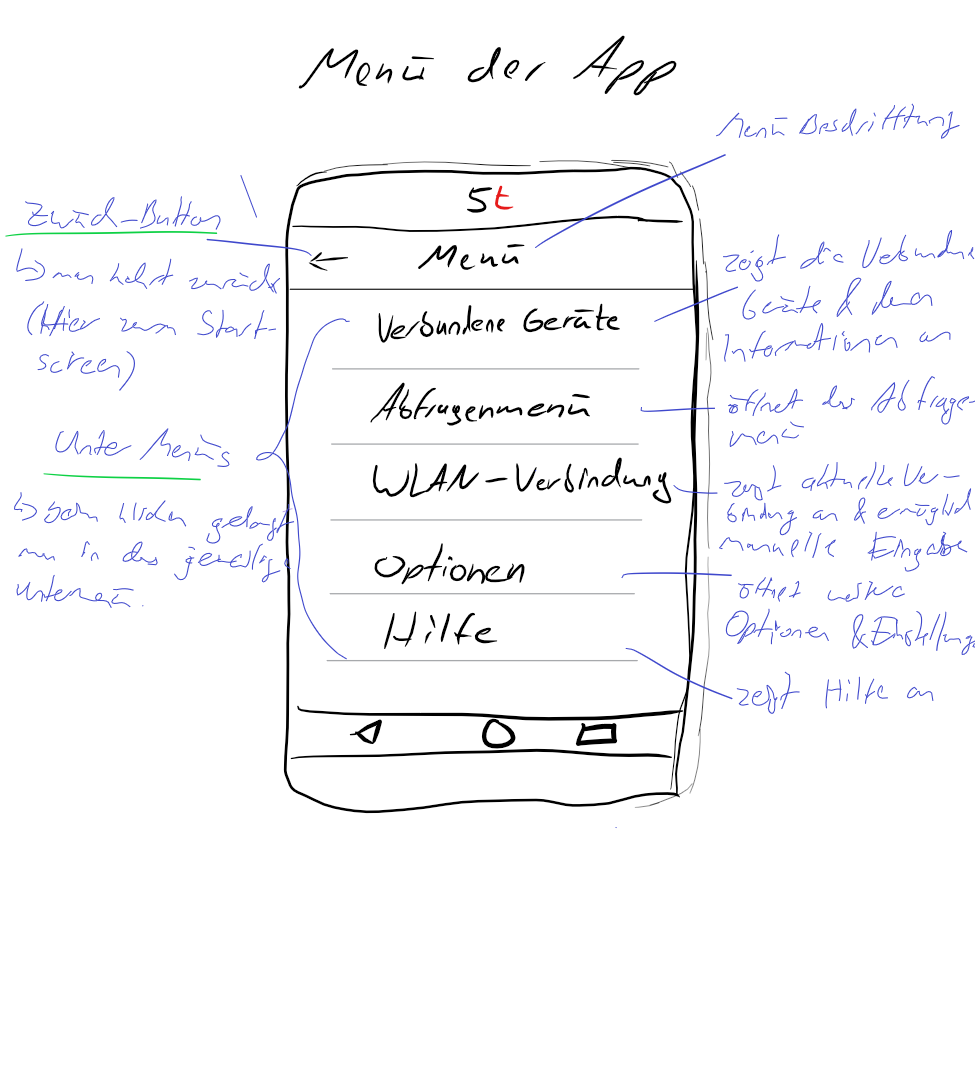 Menü der App
Menü Beschrifttung
St
← Menü
Zurück-Button
↳ man kehrt zurück
(Hier zum Start-
screen)
Unter Menüs
↳ beim klicken gelangt
man in das jeweilige
untermenü.
Verbundene Geräte
Abfragenmenü
WLAN-Verbindung
Optionen
Hilfe
zeigt die Verbundne
Geräte & deren
Informationen an
öffnet das Abfrage-
menü
zeigt aktuelle Ver-
bindung an & ermöglicht
manuelle Eingabe
öffnet weitere
Optionen & Einstellunge
zeigt Hilfe an